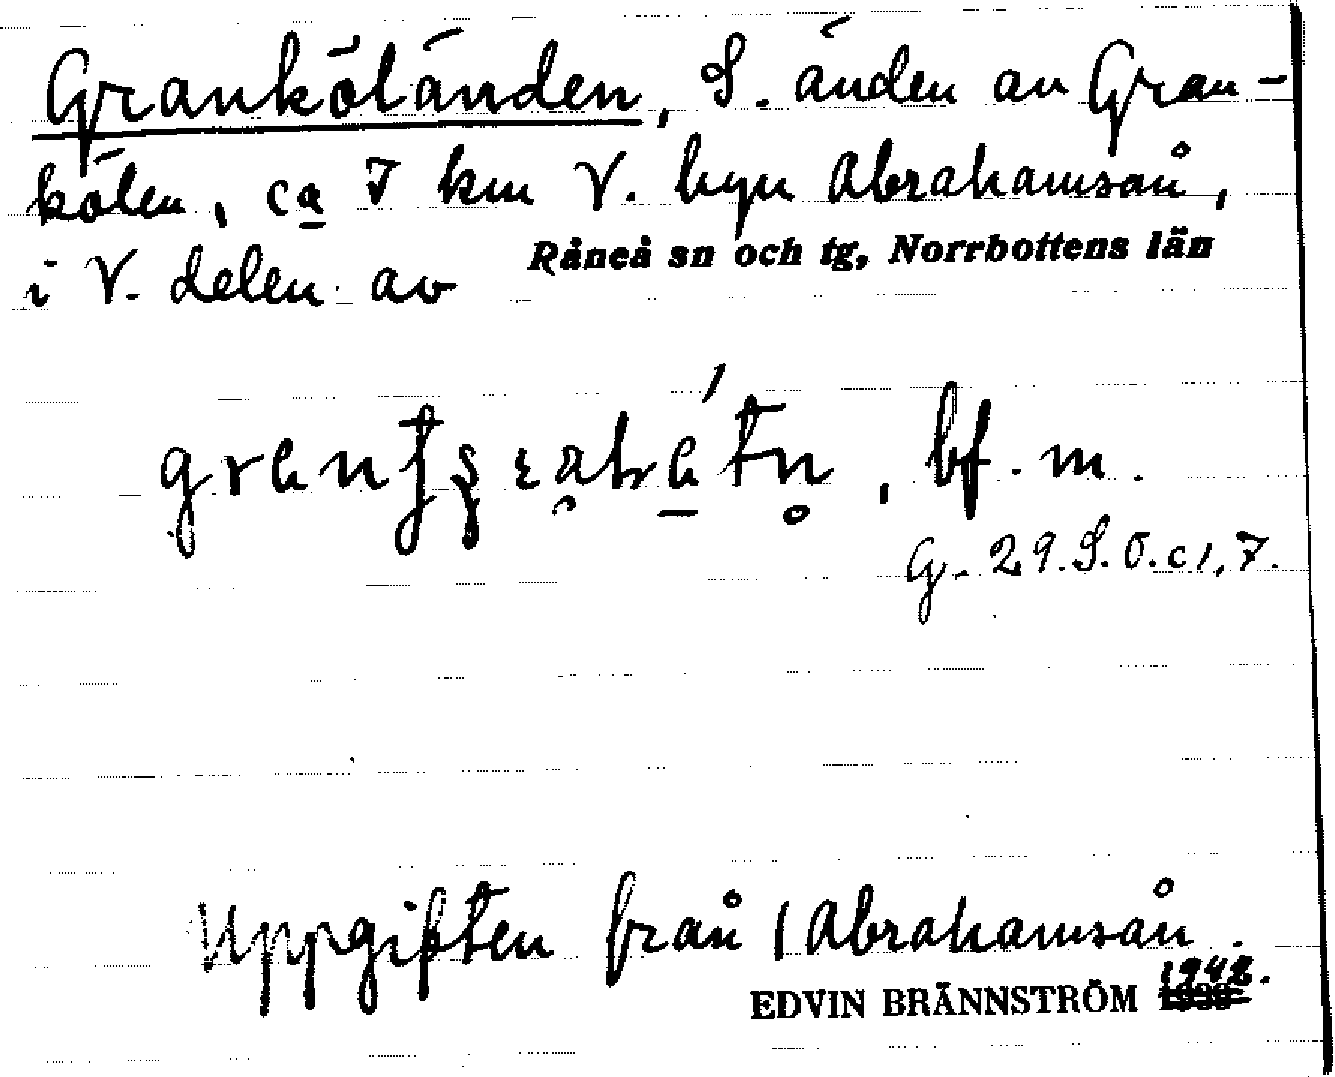 Granköländen, S. änden av Gran-
kölen, ca 7 km V. byn Abrahamsån,
i V. delen av Råneå sn och tg, Norrbottens län
bf. m.
G. 29. S. O. c 1, 7.
Uppgiften från Abrahamsån.
EDVIN BRÄNNSTRÖM 1942.